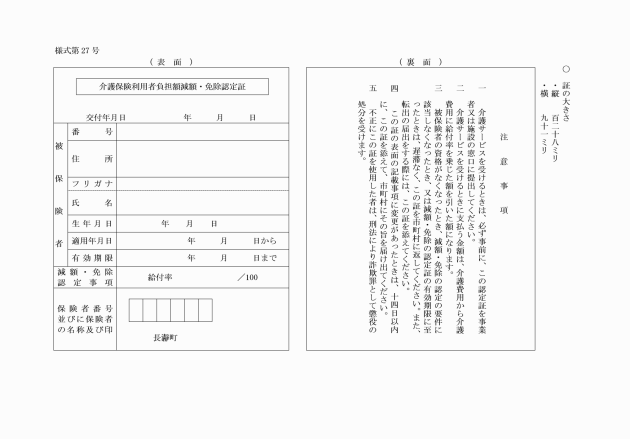 様式第27号
（表　面）
介護保険利用者負担額減額・免除認定証
交付年月日　年　月　日
被保険者
番　号
住　所
フリガナ
氏　名
生年月日　年　月　日
適用年月日　年　月　日から
有効期限　年　月　日まで
減額・免除
認定事項
給付率　／100
保険者番号
並びに保険者
の名称及び印
長瀞町
（裏　面）
注意事項
一　介護サービスを受けるときは、必ず事前に、この認定証を事業
者又は施設の窓口に提出してください。
二　介護サービスを受けるときに支払う金額は、介護費用から介護
費用に給付率を乗じた額を引いた額になります。
三　被保険者の資格がなくなったとき、減額・免除の認定の要件に
該当しなくなったとき、又は減額・免除の認定証の有効期限に至
ったときは、遅滞なく、この証を市町村に返してください。また、
転出の届出をする際には、この証を添えてください。
四　この証の表面の記載事項に変更があったときは、十四日以内
に、この証を添えて、市町村にその旨を届け出てください。
五　不正にこの証を使用した者は、刑法により詐欺罪として懲役の
処分を受けます。
○　証の大きさ
・縦　百二十八ミリ
・横　九十一ミリ